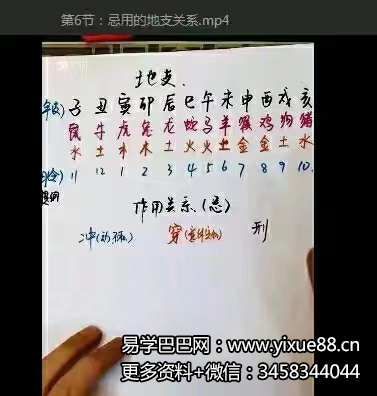 第6节：忌用的地支关系.mp4
地支.
子 丑 寅 卯 辰 巳 午 未 申 酉 戌 亥
鼠 牛 虎 兔 龙 蛇 马 羊 猴 鸡 狗 猪
水 土 木 木 土 火 火 土 金 金 土 水
11 12 1 2 3 4 5 6 7 8 9 10
作用关系(忌)
冲 穿 刑
易学巴巴网：www.yixue88.cn
更多资料+微信：3458344044